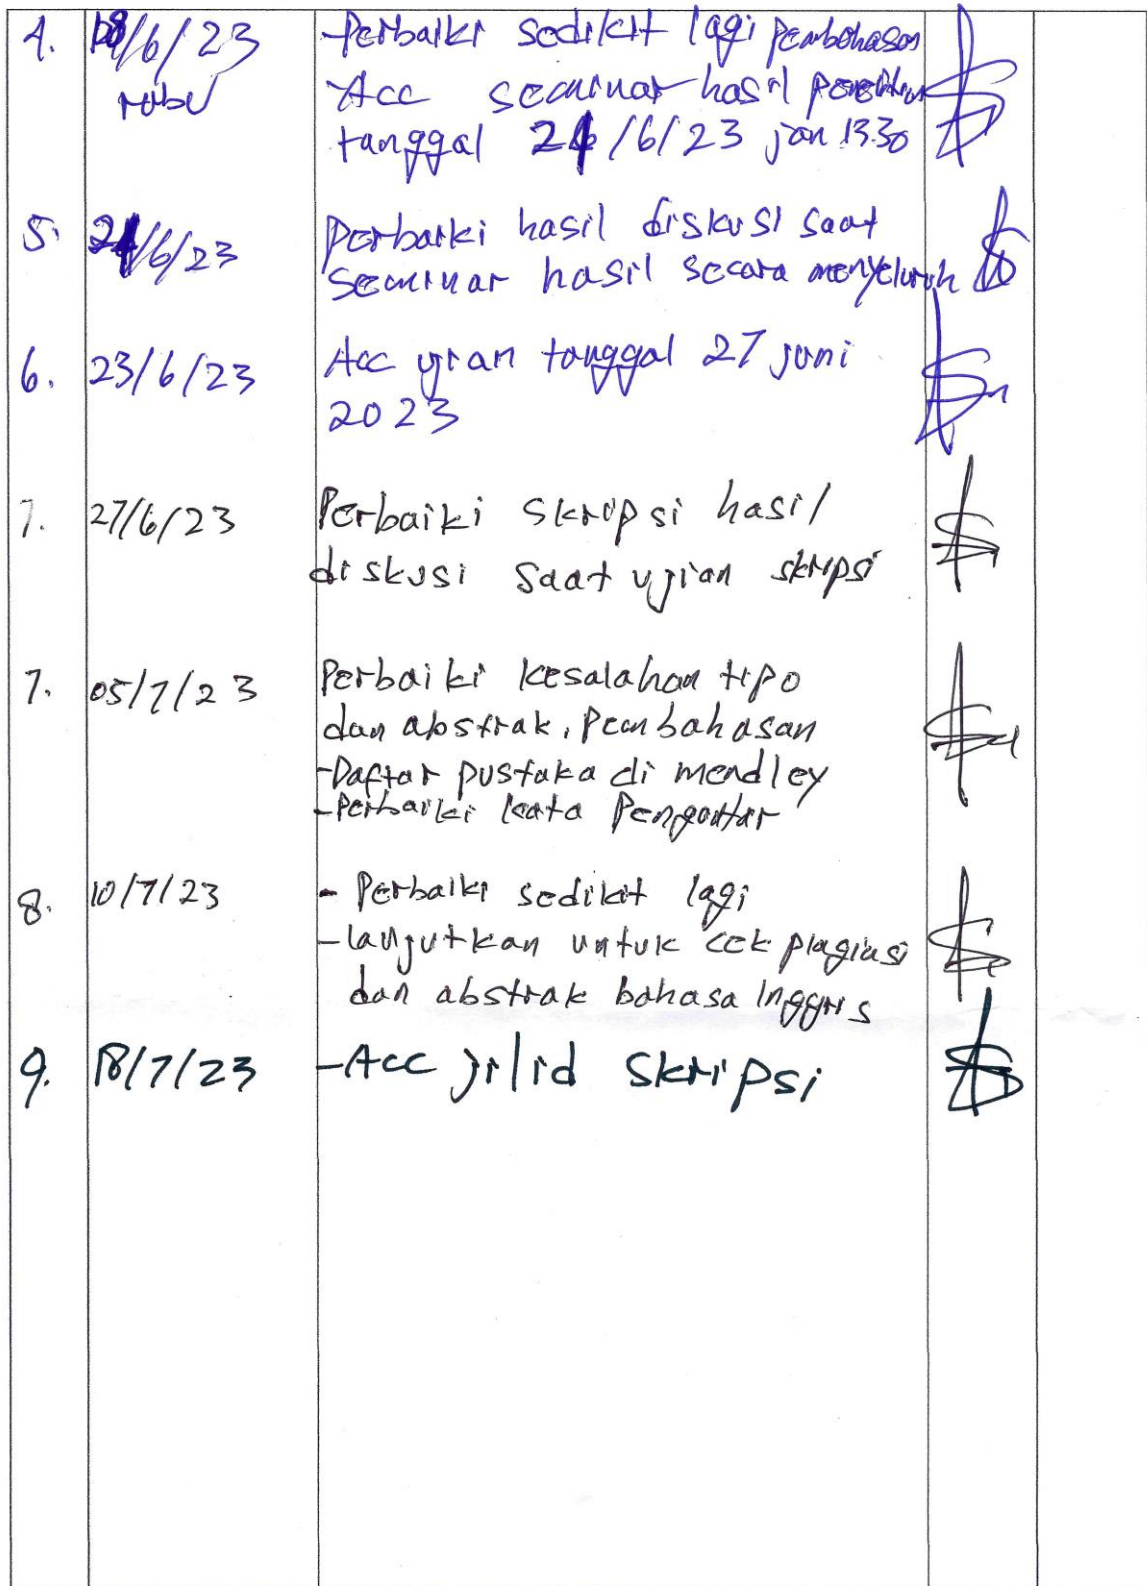 4. 18/6/23 -Perbaiki sedikit lagi pembahasan
rabu -Acc seminar hasil penelitian
tanggal 21/6/23 jam 13.30
5. 21/6/23 Perbaiki hasil diskusi saat
seminar hasil secara menyeluruh
6. 23/6/23 Acc ujian tanggal 27 juni
2023
7. 27/6/23 Perbaiki skripsi hasil
diskusi saat ujian skripsi
7. 05/7/23 Perbaiki kesalahan tipo
dan abstrak, Pembahasan
-Daftar pustaka di mendley
-Perbaiki kata Pengantar
8. 10/7/23 - Perbaiki sedikit lagi
-lanjutkan untuk cek plagiasi
dan abstrak bahasa Inggris
9. 18/7/23 -Acc jilid skripsi